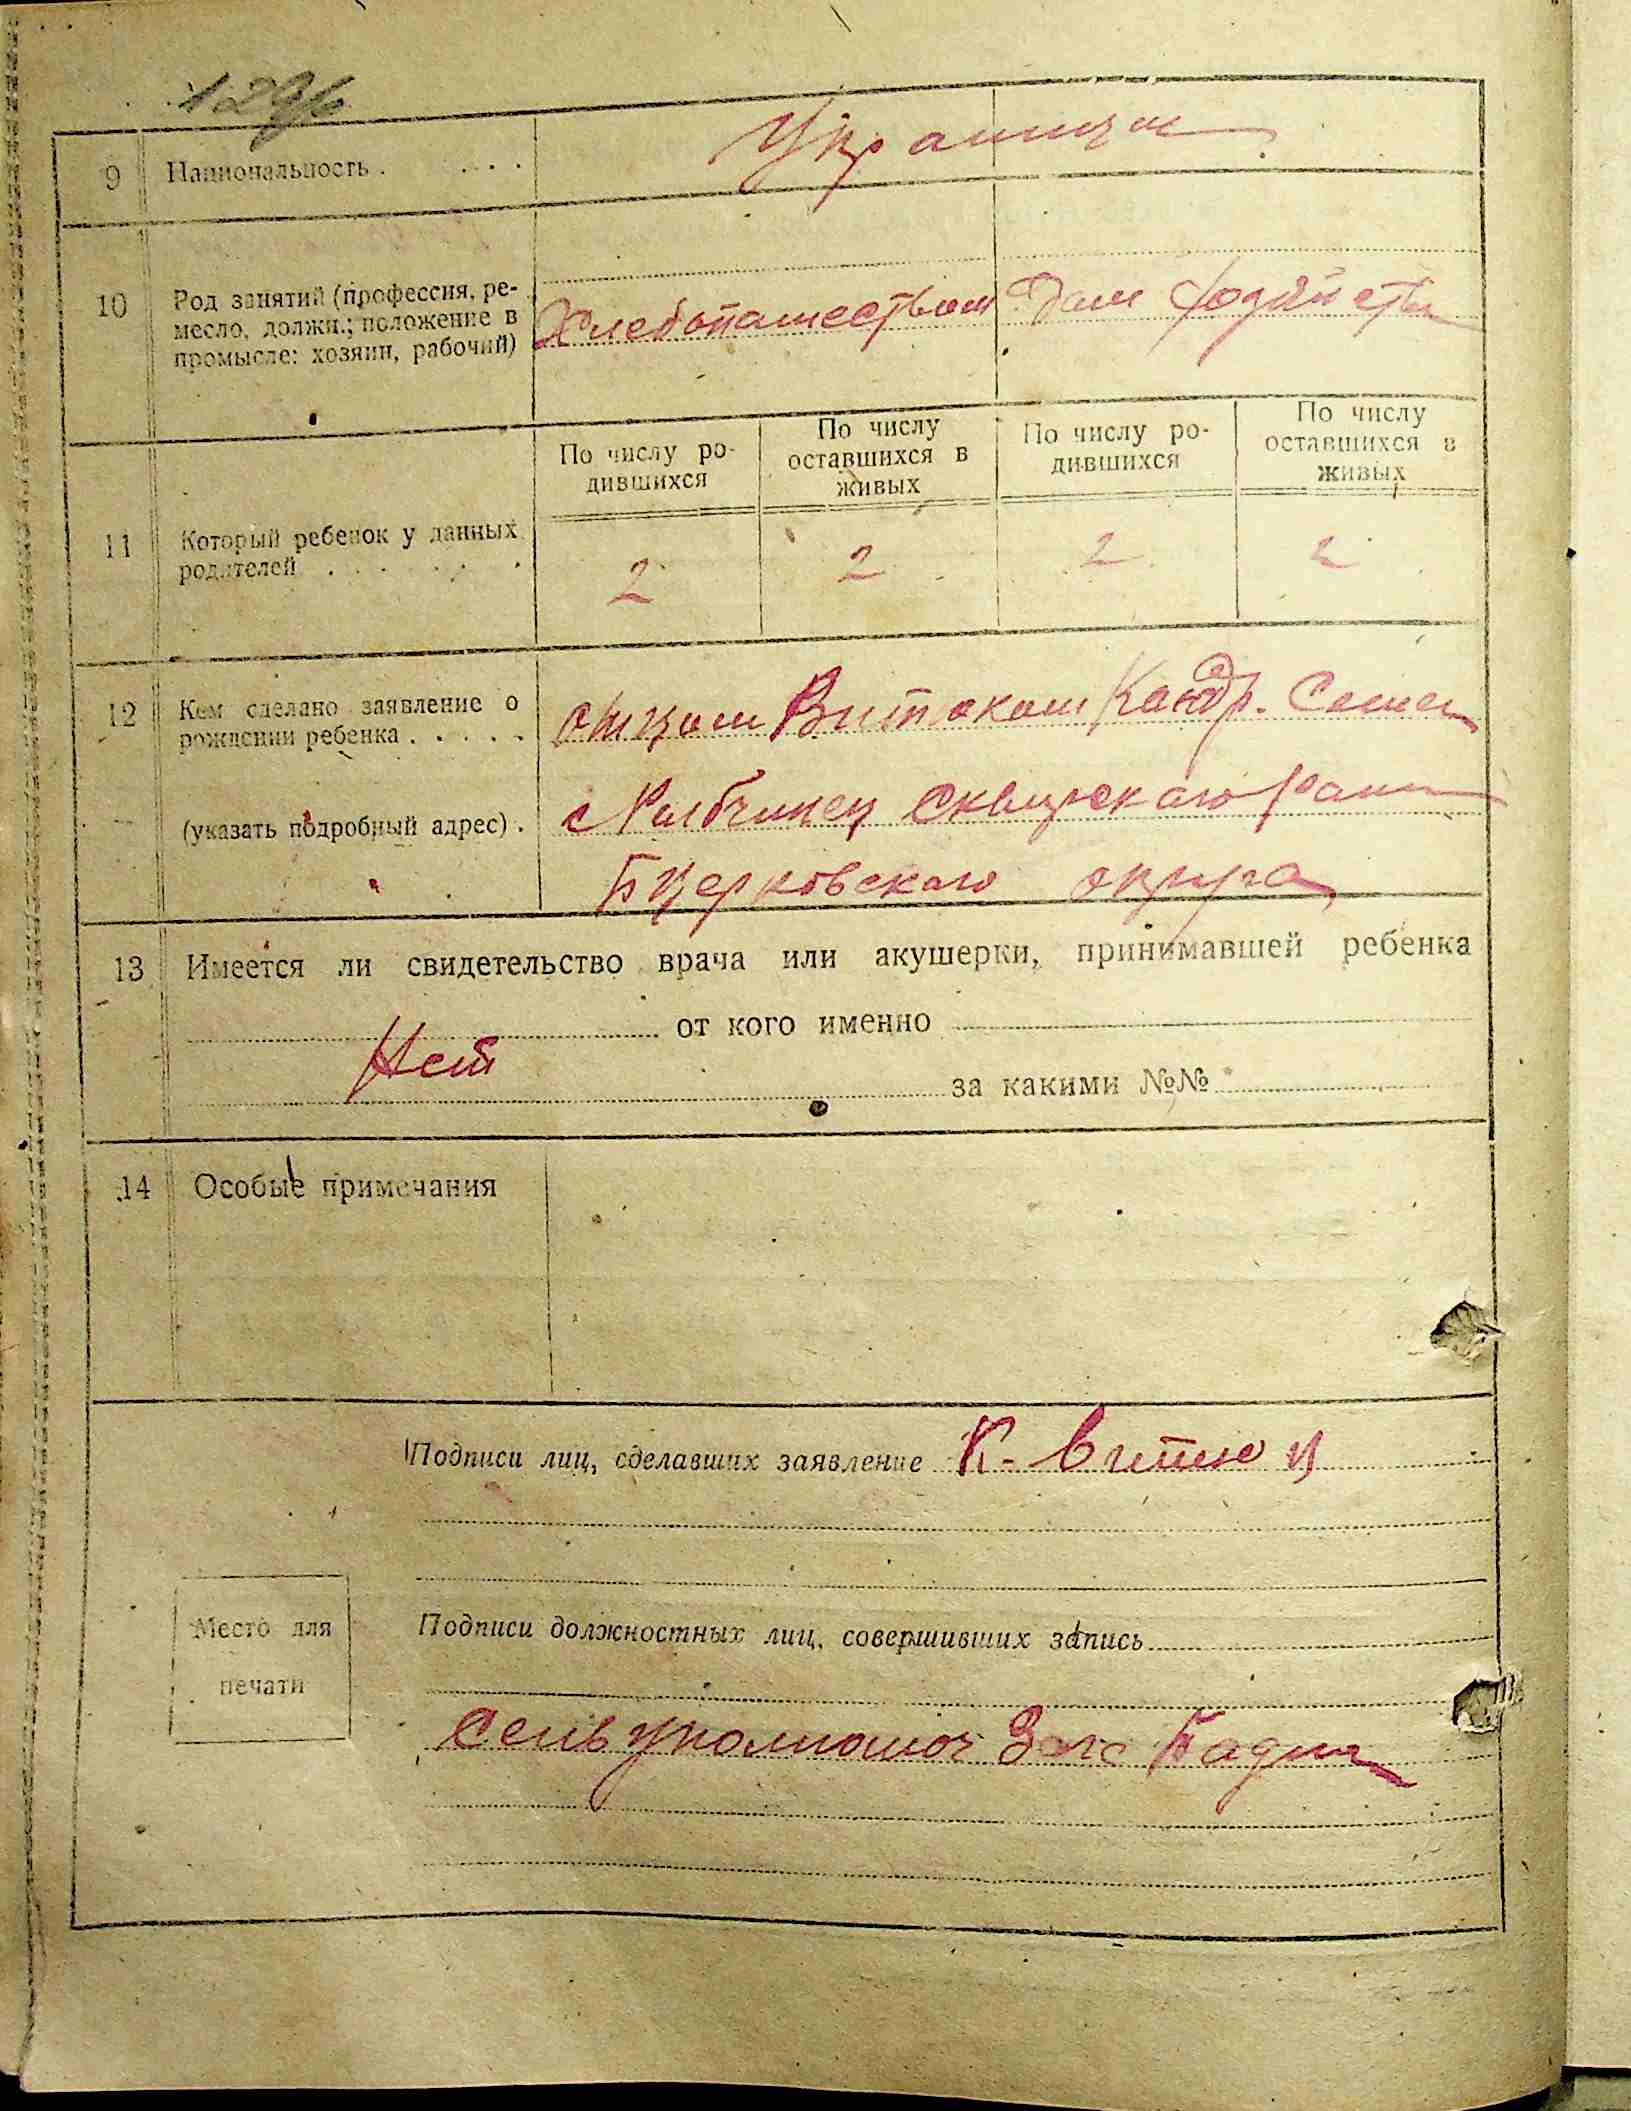 9 Национальность . . . . . Украинцы
10 Род занятий (профессия, ре-
месло, должн.; положение в
промысле: хозяин, рабочий)
Хлебопашеством Дом хозяйство
11 Который ребенок у данных
родителей . . . . . .
По числу ро-
дившихся
По числу
оставшихся в
живых
По числу ро-
дившихся
По числу
оставшихся в
живых
2 2 2 2
12 Кем сделано заявление о
рождении ребенка . . . . .
(указать подробный адрес) .
отцом Кондр. Семен
с Сквирского Район
БЦерковского округа
13 Имеется ли свидетельство врача или акушерки, принимавшей ребенка
от кого именно
Нет
за какими №№
14 Особые примечания
Подписи лиц, сделавших заявление К.
Место для
печати
Подписи должностных лиц, совершивших запись
Сельуполномоч Загс